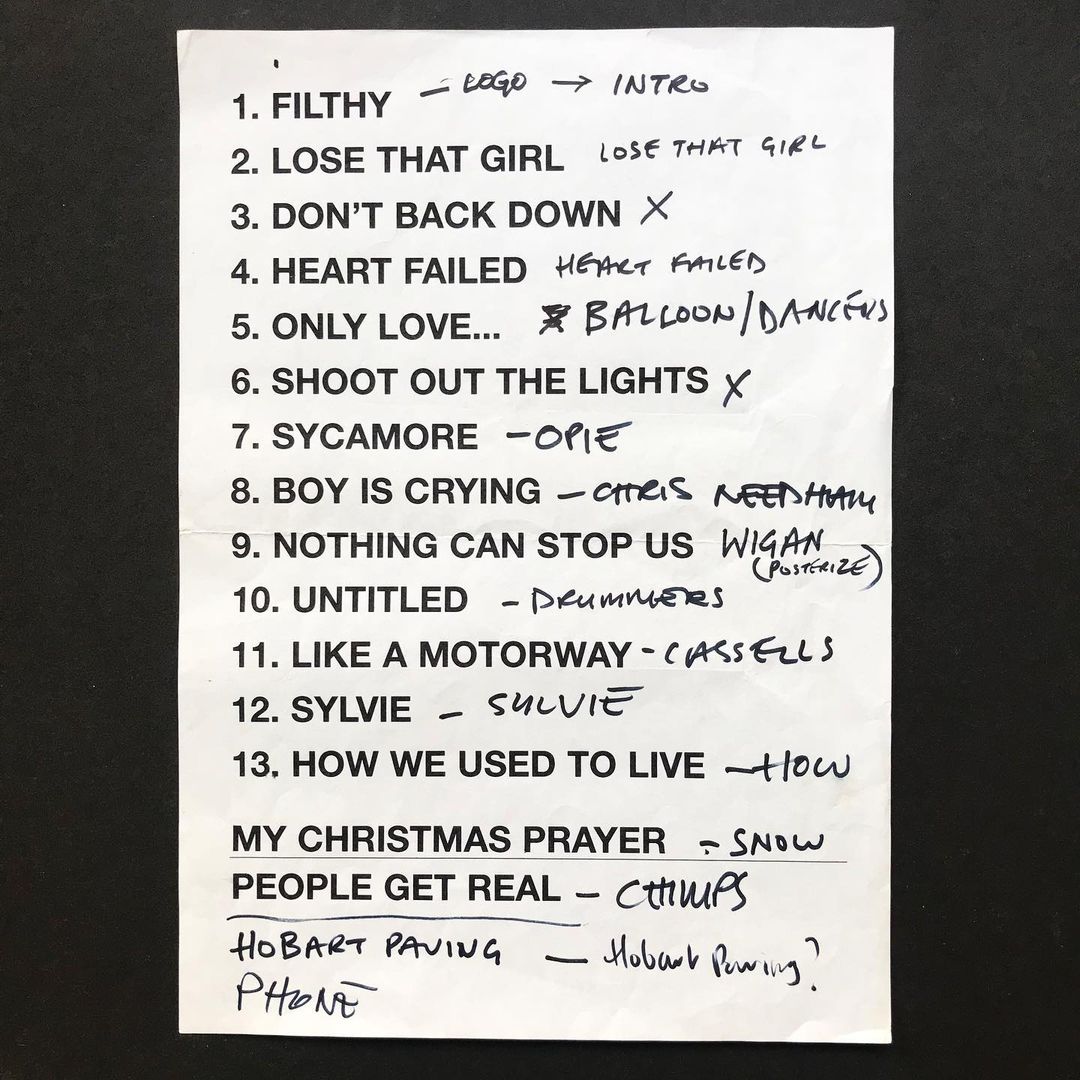 1. FILTHY – LOGO → INTRO
2. LOSE THAT GIRL LOSE THAT GIRL
3. DON'T BACK DOWN X
4. HEART FAILED HEART FAILED
5. ONLY LOVE... BALLOON/DANCERS
6. SHOOT OUT THE LIGHTS X
7. SYCAMORE – OPIE
8. BOY IS CRYING – CHRIS NEEDHAM
9. NOTHING CAN STOP US WIGAN
(POSTERIZE)
10. UNTITLED – DRUMMERS
11. LIKE A MOTORWAY - CASSELLS
12. SYLVIE – SYLVIE
13. HOW WE USED TO LIVE – HOW
MY CHRISTMAS PRAYER – SNOW
PEOPLE GET REAL – CHIMPS
HOBART PAVING – Hobart Paving?
PHONE